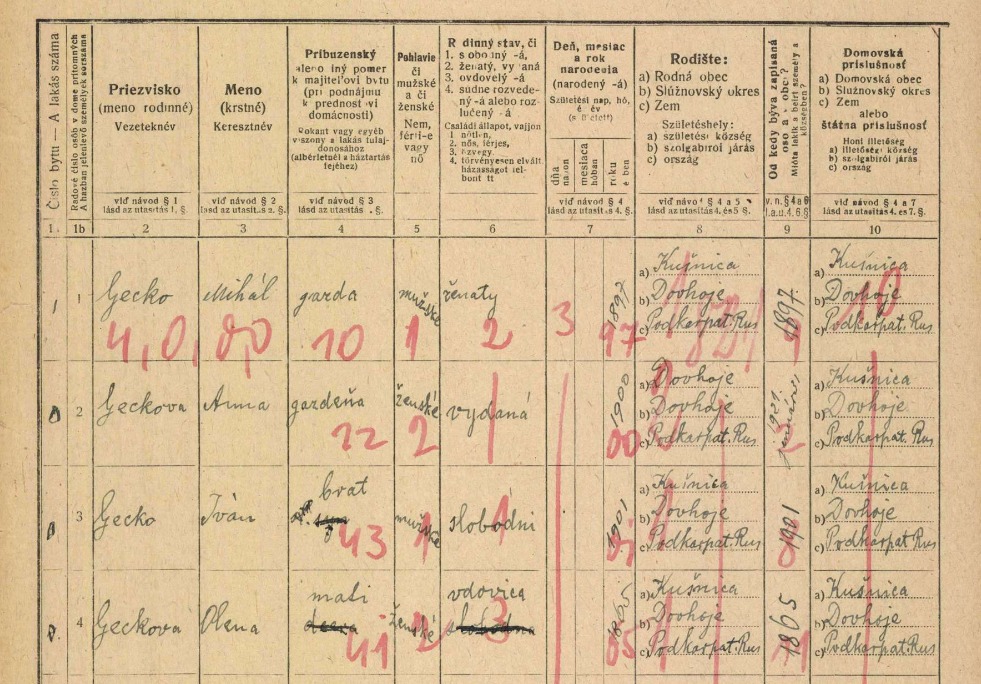 Číslo bytu — A lakás száma
Radové číslo osôb v dome prítomných
A házban jelenlevő személyek sorszáma
Priezvisko
(meno rodinné)
Vezetéknév
Meno
(krstné)
Keresztnév
Príbuzenský
alebo iný pomer
k majiteľovi bytu
(pri podnájmu
k prednostovi
domácnosti)
Rokant vagy egyéb
viszony a lakás tulaj-
donosához
(albérletnél a háztartás
fejéhez)
Pohlavie
či
mužské
a či
ženské
Nem,
férfi-e
vagy
nő
Rodinný stav, či
1. slobodný -á,
2. ženatý, vydaná
3. ovdovelý -á
4. súdne rozvede-
ný -á alebo roz-
lúčený -á
Családi állapot, vajjon
1. nőtlen,
2. nős, férjes,
3. özvegy,
4. törvényesen elvált,
házasságot fel-
bontott
Deň, mesiac
a rok
narodenia
(narodený -á)
Születési nap, hó,
év
dňa
napon
mesiaca
hóban
roku
évben
Rodište:
a) Rodná obec
b) Slúžnovský okres
c) Zem
Születéshely:
a) születési község
b) szolgabírói járás
c) ország
Od kedy býva zapísaná
osoba v obci?
Mióta lakik a beírt személy a
községben?
Domovská
príslušnosť
a) Domovská obec
b) Slúžnovský okres
c) Zem
alebo
štátna príslušnosť
Honi illetőség
a) illetőségi község
b) szolgabírói járás
c) ország
viď návod § 1
lásd az utasítás 1. §.
viď návod § 2
lásd az utasítás 2. §.
viď návod § 3
lásd az utasítás 3. §.
viď návod § 4
lásd az utasítás 4. §.
viď návod § 4 a 5
lásd az utasítás 4. és 5. §.
v. n. § 4 a 6
l. a. u. 4. 6. §
viď návod § 4 a 7
lásd az utasítás 4. és 7. §.
1. 1b 2 3 4 5 6 7 8 9 10
1 1 Gecko Mihál gazda mužské ženatý 1897 a) Kušnica 1897 a) Kušnica
b) Dovhoje b) Dovhoje
c) Podkarpat. Rus c) Podkarpat. Rus
4,0,00 10 1 2 3 97
2 Geckova Anna gazdeňa ženské vydaná 1900 a) Dovhoje 1921 januários a) Kušnica
b) Dovhoje b) Dovhoje
c) Podkarpat. Rus c) Podkarpat. Rus
22 2 1 00
3 Gecko Iván brat mužské slobodni 1901 a) Kušnica 1901 a) Kušnica
b) Dovhoje b) Dovhoje
c) Podkarpat. Rus c) Podkarpat. Rus
43 1 1
4 Geckova Olena mati ženské vdovica 1865 a) Kušnica 1865 a) Kušnica
b) Dovhoje b) Dovhoje
c) Podkarpat. Rus c) Podkarpat. Rus
41 2 3 65